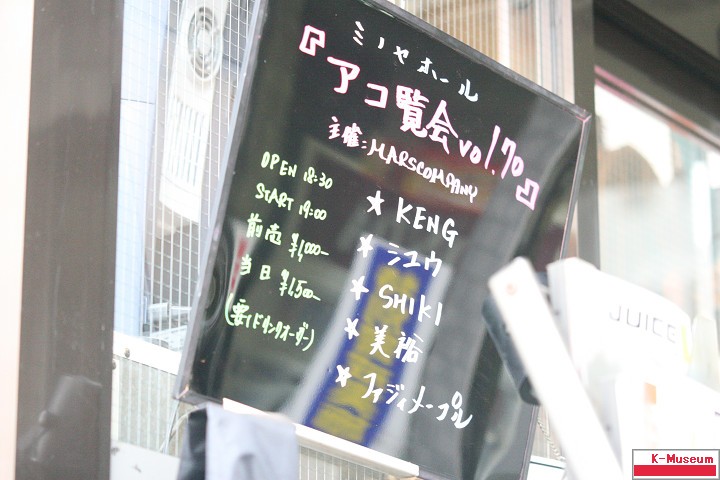 ミノヤホール
『アコ覧会vol.70』
主催:MARSCOMPANY
OPEN 18:30
START 19:00
前売 ¥1,000-
当日 ¥1,500-
(要1ドリンクオーダー)
☆ KENG
☆ シユウ
☆ SHIKI
☆ 美裕
☆ ファジィメープル
JUICE
K-Museum